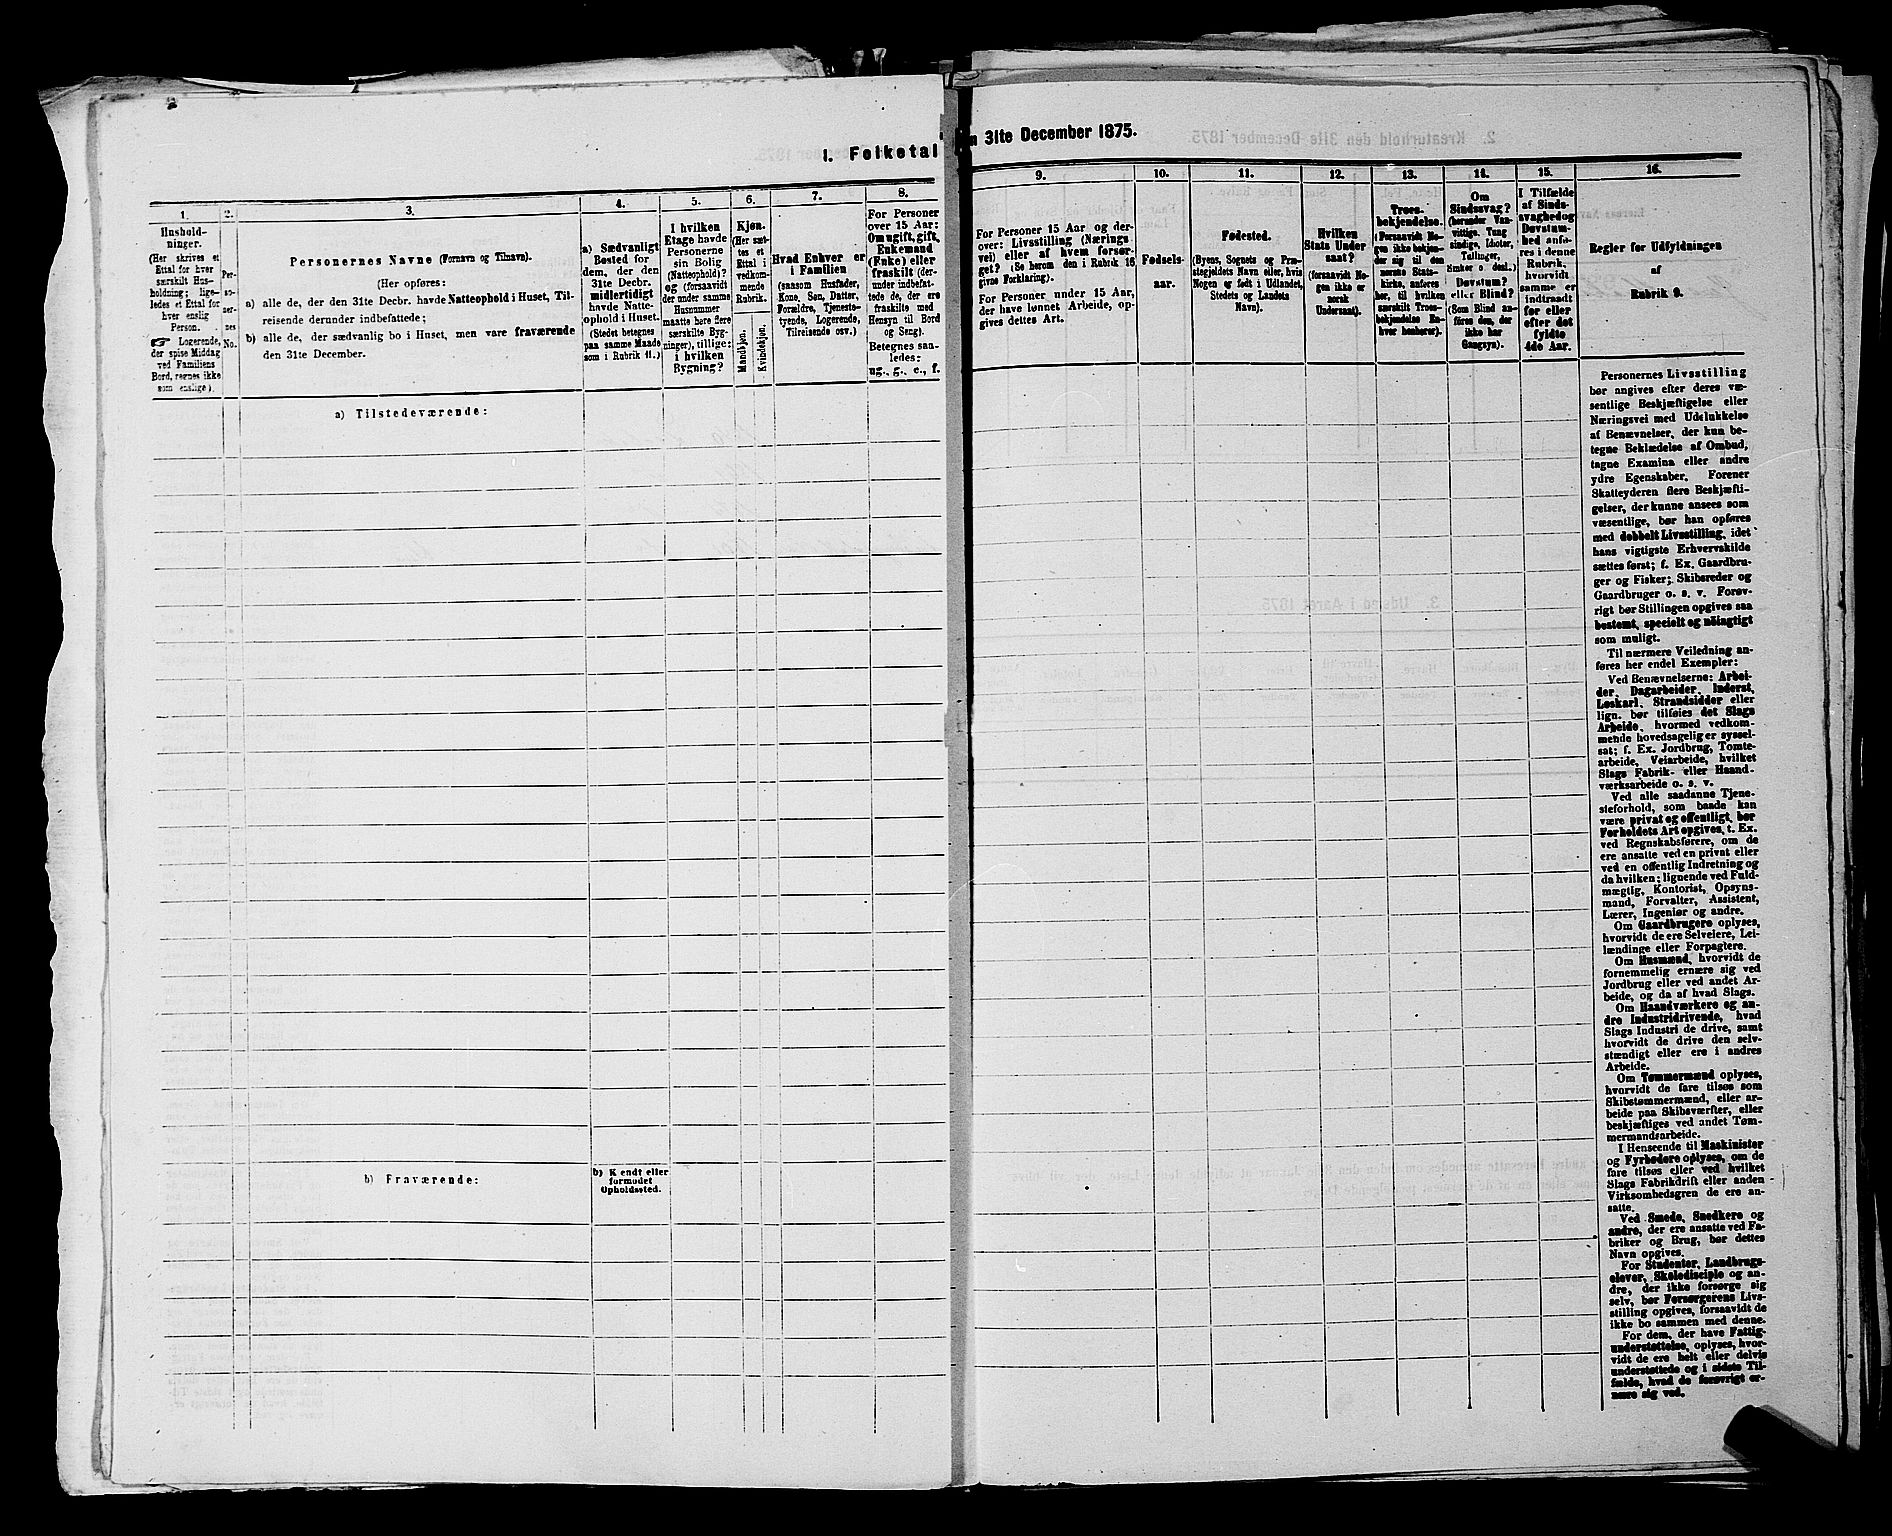 1. Folketal
n 31te December 1875.
1.
2.
3.
4.
5.
6.
7.
8.
9.
10.
11.
12.
13.
14.
15.
16.
Husholdninger.
(Her skrives et
Ettal for hver
særskilt Husholdning; ligeledes et Ettal for
hver enslig
Person.
☞ Logerende,
der spise Middag
ved Familiens
Bord, regnes ikke
som enslige).
Personernes
No.
Personernes Navne (Fornavn og Tilnavn).
(Her opføres:
a) alle de, der den 31te Decbr. havde Natteophold i Huset, Tilreisende derunder indbefattede;
b) alle de, der sædvanlig bo i Huset, men vare fraværende
den 31te December.
a) Sædvanligt
Bosted for
dem, der den
31te Decbr.
midlertidigt
havde Natteophold i Huset.
(Stedet betegnes
paa samme Maade
som i Rubrik 11.)
I hvilken
Etage havde
Personerne
sin Bolig
(Natteophold)?
og (forsaavidt
der under samme
Husnummer
maatte høre flere
særskilte Bygninger), tillige:
i hvilken
Bygning?
Kjøn.
(Her sættes et
Ettal i
vedkommende
Rubrik.
Mandkjøn.
Kvindekjøn.
Hvad Enhver er
i Familien
(saasom Husfader,
Kone, Søn, Datter,
Forældre, Tjenestetyende, Logerende,
Tilreisende osv.)
For Personer
over 15 Aar:
Om ugift, gift,
Enkemand
(Enke) eller
fraskilt (derunder indbefattede de, der ere
fraskilte med
Hensyn til Bord
og Seng).
Betegnes saaledes:
ug., g., e., f.
For Personer 15 Aar og derover: Livsstilling (Næringsvei) eller af hvem forsørget? (Se herom den i Rubrik 16
givne Forklaring).
For Personer under 15 Aar,
der have lønnet Arbeide, opgives dettes Art.
Fødselsaar.
Fødested.
(Byens, Sognets og Præstegjeldets Navn eller, hvis
Nogen er født i Udlandet,
Stedets og Landets
Navn).
Hvilken
Stats Undersaat?
(forsaavidt Nogen ikke er
norsk
Undersaat).
Troesbekjendelse.
(Forsaavidt Nogen ikke bekjender sig til den
norske Statskirke, anføres
her, til hvilken
særskilt Troesbekjendelse Enhver henhører).
Om
Sindssvag?
(herunder Vanvittige, Tungsindige, Idioter,
Tullinger,
Sinker o. desl.)
Døvstum?
eller Blind?
(Som Blind anføres den, der
ikke har
Gangsyn).
I Tilfælde
af Sindssvaghed og
Døvstumhed anføres i denne
Rubrik,
hvorvidt
samme er
indtraadt
før eller
efter det
fyldte
4de Aar.
Regler for Udfyldningen
af
Rubrik 9.
a) Tilstedeværende:
b) Fraværende:
b) Kjendt eller
formodet
Opholdssted.
Personernes Livsstilling
bør angives efter deres væsentlige Beskjæftigelse eller
Næringsvei med Udelukkelse
af Benævnelser, der kun betegne Beklædelse af Ombud,
tagne Examina eller andre
ydre Egenskaber. Forener
Skatteyderen flere Beskjæftigelser, der kunne ansees som
væsentlige, bør han opføres
med dobbelt Livsstilling, idet
hans vigtigste Erhvervskilde
sættes først; f. Ex. Gaardbruger og Fisker; Skibsreder og
Gaardbruger o. s. v. Forøvrigt bør Stillingen opgives saa
bestemt, specielt og nøiagtigt
som muligt.
Til nærmere Veiledning anføres her endel Exempler:
Ved Benævnelserne: Arbeider, Dagarbeider, Inderst,
Løskarl, Strandsidder eller
lign. bør tilføies det Slags
Arbeide, hvormed vedkommende hovedsagelig er sysselsat; f. Ex. Jordbrug, Tomtearbeide, Veiarbeide, hvilket
Slags Fabrik- eller Haandværksarbeide o. s. v.
Ved alle saadanne Tjenesteforhold, som baade kan
være privat og offentligt, bør
Forholdets Art opgives, t. Ex.
ved Regnskabsførere, om de
ere ansatte ved en privat eller
ved en offentlig Indretning og
da hvilken; lignende ved Fuldmægtig, Kontorist, Opsynsmand, Forvalter, Assistent,
Lærer, Ingeniør og andre.
Om Gaardbrugere oplyses,
hvorvidt de ere Selveiere, Leilændinge eller Forpagtere.
Om Husmænd, hvorvidt de
fornemmelig ernære sig ved
Jordbrug eller ved andet Arbeide, og da af hvad Slags.
Om Haandværkere og andre Industridrivende, hvad
Slags Industri de drive, samt
hvorvidt de drive den selvstændigt eller ere i andres
Arbeide.
Om Tømmermænd oplyses,
hvorvidt de fare tilsøs som
Skibstømmermænd, eller arbeide paa Skibsværfter, eller
beskjæftiges ved andet Tømmermandsarbeide.
I Henseende til Maskinister
og Fyrbødere oplyses, om de
fare tilsøs eller ved hvilket
Slags Fabrikdrift eller anden
Virksomhedsgren de ere ansatte.
Ved Smede, Snedkere og
andre, der ere ansatte ved Fabriker og Brug, bør dettes
Navn opgives.
For Studenter, Landbrugselever, Skoledisciple og andre, der ikke forsørge sig
selv, bør Forsørgerens Livsstilling opgives, forsaavidt de
ikke bo sammen med denne.
For dem, der have Fattigunderstøttelse, oplyses, hvorvidt de ere helt eller delvis
understøttede og i sidste Tilfælde, hvad de forøvrigt ernære sig ved.